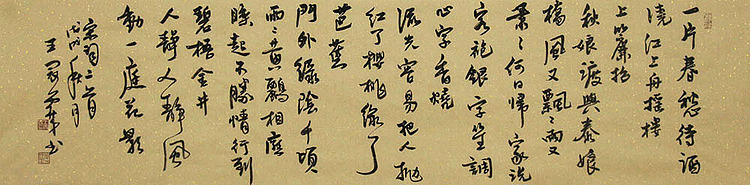 一片春愁待酒
澆江上舟搖樓
上帘招
秋娘渡與泰娘
橋風又飄飄雨又
蕭蕭何日歸家洗
客袍銀字笙調
心字香燒
流光容易把人拋
紅了櫻桃綠了
芭蕉
門外綠陰千頃
兩兩黃鸝相應
睡起不勝情行到
碧梧金井
人聲人靜風
動一庭花影
宋詞二首
戊戌 月
王 書